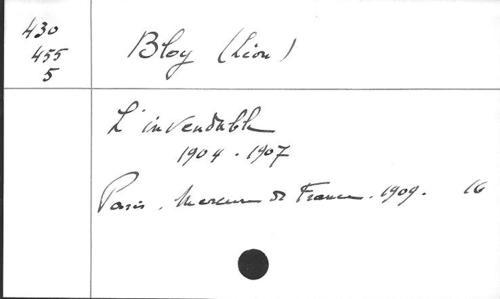 430
455
5
Bloy (Léon)
L'invendable
1904 - 1907
Paris. Mercure de France. 1909. 16